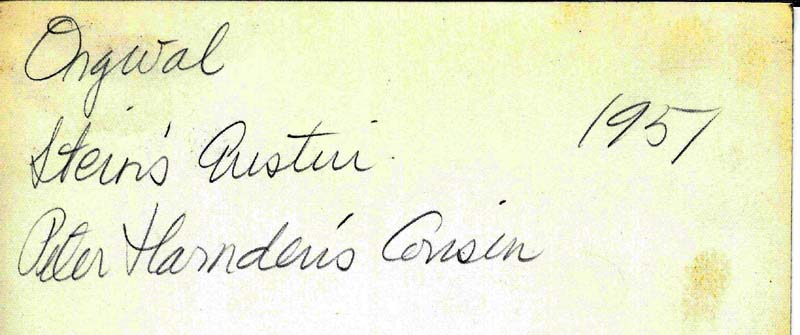 Orgival
Stein's Austin 1951
Peter Harnden's Cousin